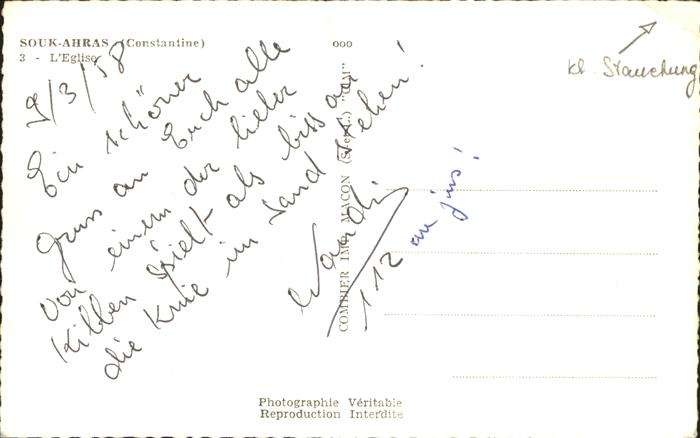 SOUK-AHRAS (Constantine)
3 - L'Eglise
ooo
kl Stauchung
9/3/58
Ein schöner
gruss an Euch alle
von einem der lieber
Kilben spielt als biss an
die Knie im Sand stehen!
112
COMBIER IMP. MACON (S.-et-L.) "CIM"
Photographie Véritable
Reproduction Interdite